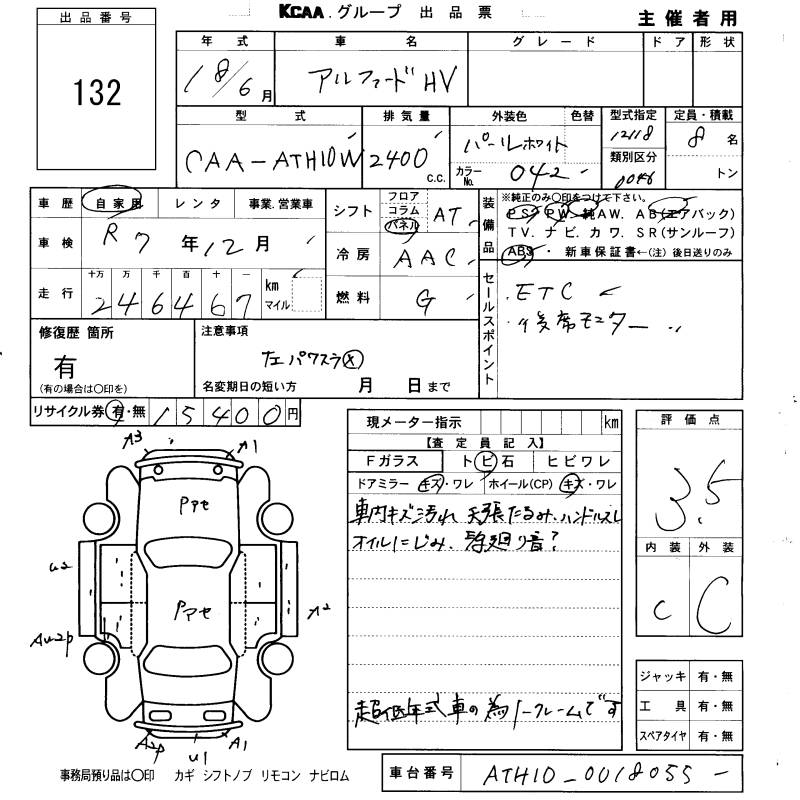 KCAA.グループ 出品票
主催者用
出品番号
132
年式 車名 グレード ドア 形状
18/6月 アルファードHV
型式 排気量 外装色 色替 型式指定 定員・積載
CAA-ATH10W 2400 c.c. パールホワイト 12118 8名
カラーNo. 042 類別区分 0046 トン
車歴 自家用 レンタ 事業.営業車
車検 R7年12月
走行 十万 万 千 百 十 一
246467 km マイル
シフト フロア コラム パネル AT
冷房 AAC
燃料 G
装備品 ※純正のみ○印をつけて下さい。
PS PW 純AW. AB(エアバック)
TV. ナビ. カワ. SR(サンルーフ)
ABS・ 新車保証書←(注) 後日送りのみ
セールスポイント
・ETC
・後席モニター
修復歴 箇所
有
(有の場合は○印を)
注意事項
左パワスラ(X)
名変期日の短い方 月 日まで
リサイクル券 有・無 15400円
現メーター指示 km
【査定員記入】
Fガラス トビ石 ヒビワレ
ドアミラー キズ・ワレ ホイール(CP) キズ・ワレ
車内キズ汚れ 天張たるみ.ハンドルスレ
オイルにじみ. 廻り音?
超低年式車の為ノークレームです
評価点
3.5
内装 外装
C C
A3 A1
Pアセ
U2
Pアセ
A2
AU2P
A2P U1 A1
ジャッキ 有・無
工具 有・無
スペアタイヤ 有・無
事務局預り品は○印 カギ シフトノブ リモコン ナビロム
車台番号 ATH10-0018055